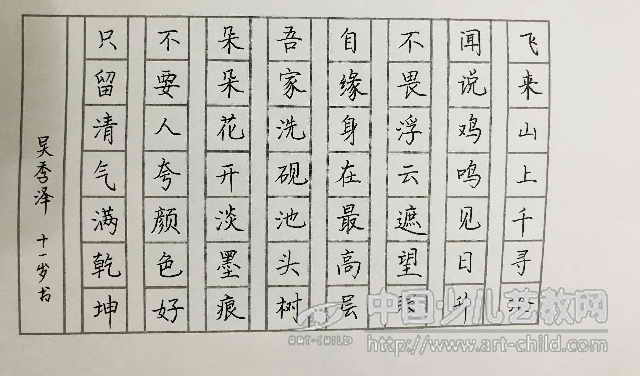 飞来山上千寻
闻说鸡鸣见日升
不畏浮云遮望
自缘身在最高层
吾家洗砚池头树
朵朵花开淡墨痕
不要人夸颜色好
只留清气满乾坤
吴季泽 十一岁书
中国·少儿艺教网
ART-CHILD
http://www.art-child.com